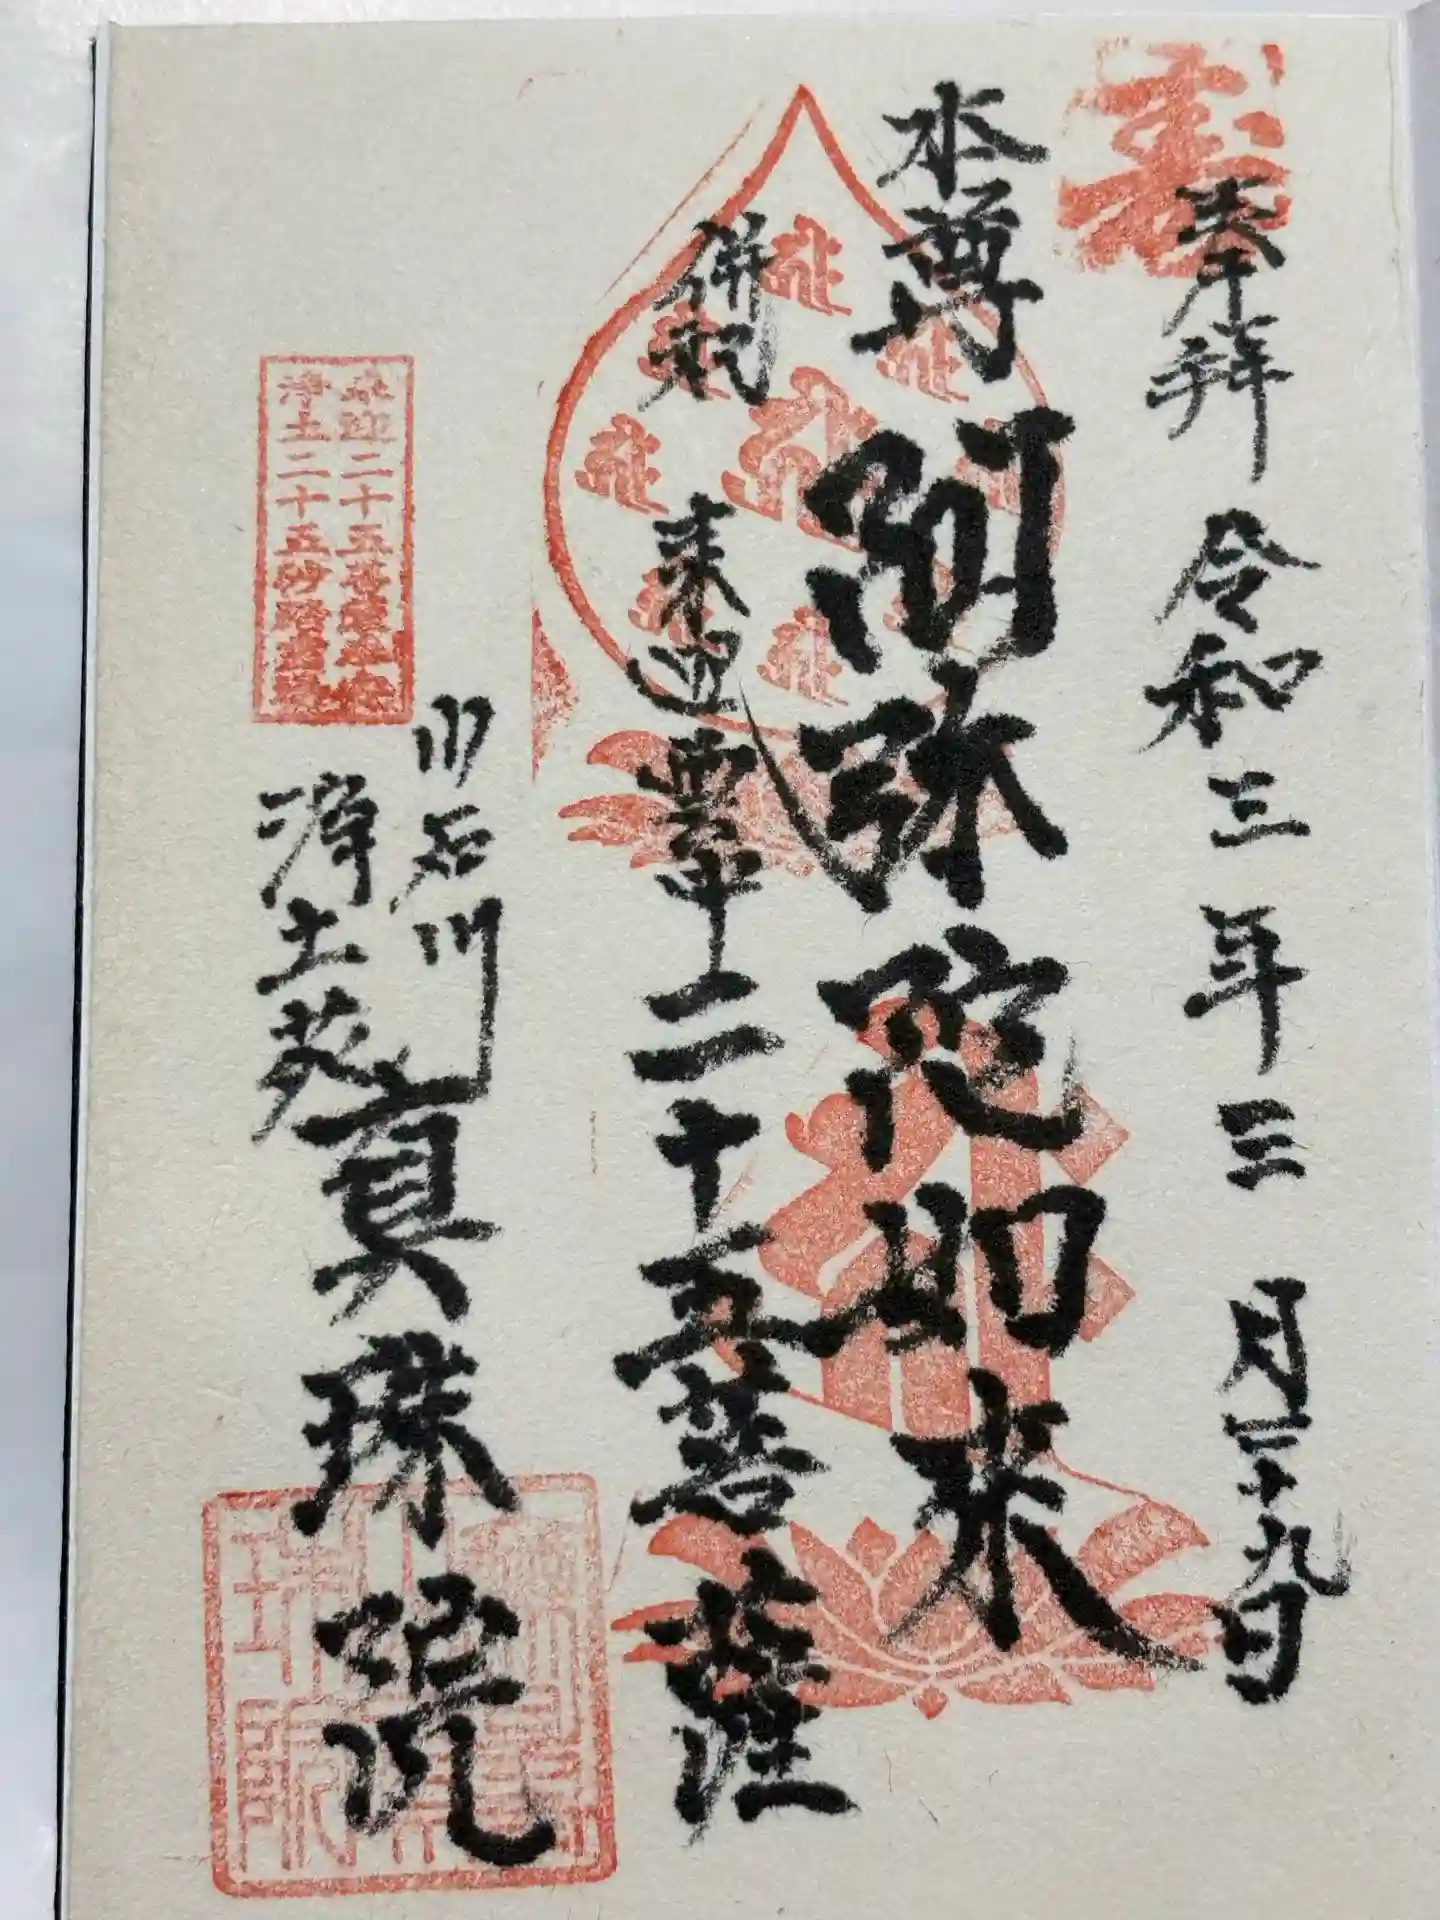 奉拝 令和三年三月二十九日
本尊 阿弥陀如来
併祀 来迎雲中二十五菩薩
小石川
浄土苑 真珠院
来迎二十五菩薩
浄土二十五